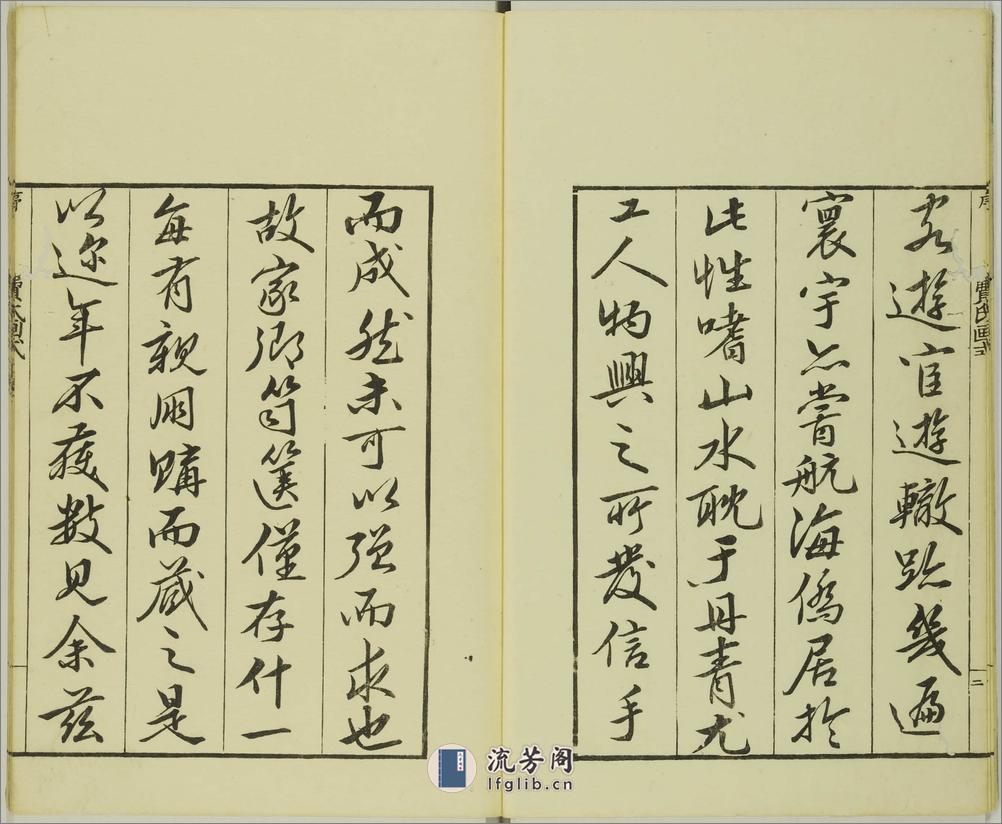 客遊宦遊轍跡幾遍
寰宇亦嘗航海僑居於
此性嗜山水耽于丹青尤
工人物興之所發信手
而成然未可以強而求也
故家鄉笥篋僅存什一
每有親朋購而藏之是
以邇年不獲數見余茲
序
費氏画式
二
流芳阁
lfglib.cn